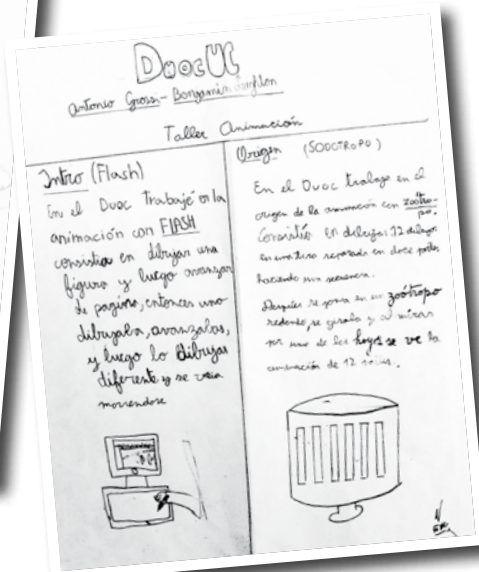 DuocUC
Antonio Grossi - Benjamin
Taller Animación
Intro (Flash)
En el Duoc Trabajé en la
animación con FLASH
consistia en dibujar una
figura y luego avanzar
de pagina, entonces uno
dibujaba, avanzabas,
y luego lo dibujas
diferente y se veia
moviendose
Origen (SOOOTROPO)
En el Duoc trabaje en el
origen de la animación con zootro-
po.
Consistió en dibujar 12 dibujos
en una tira separada en doce partes
haciendo una secuencia.
Después se ponia en un zoótropo
redondo, se giraba y al mirar
por uno de los hoyos se ve la
animación de 12